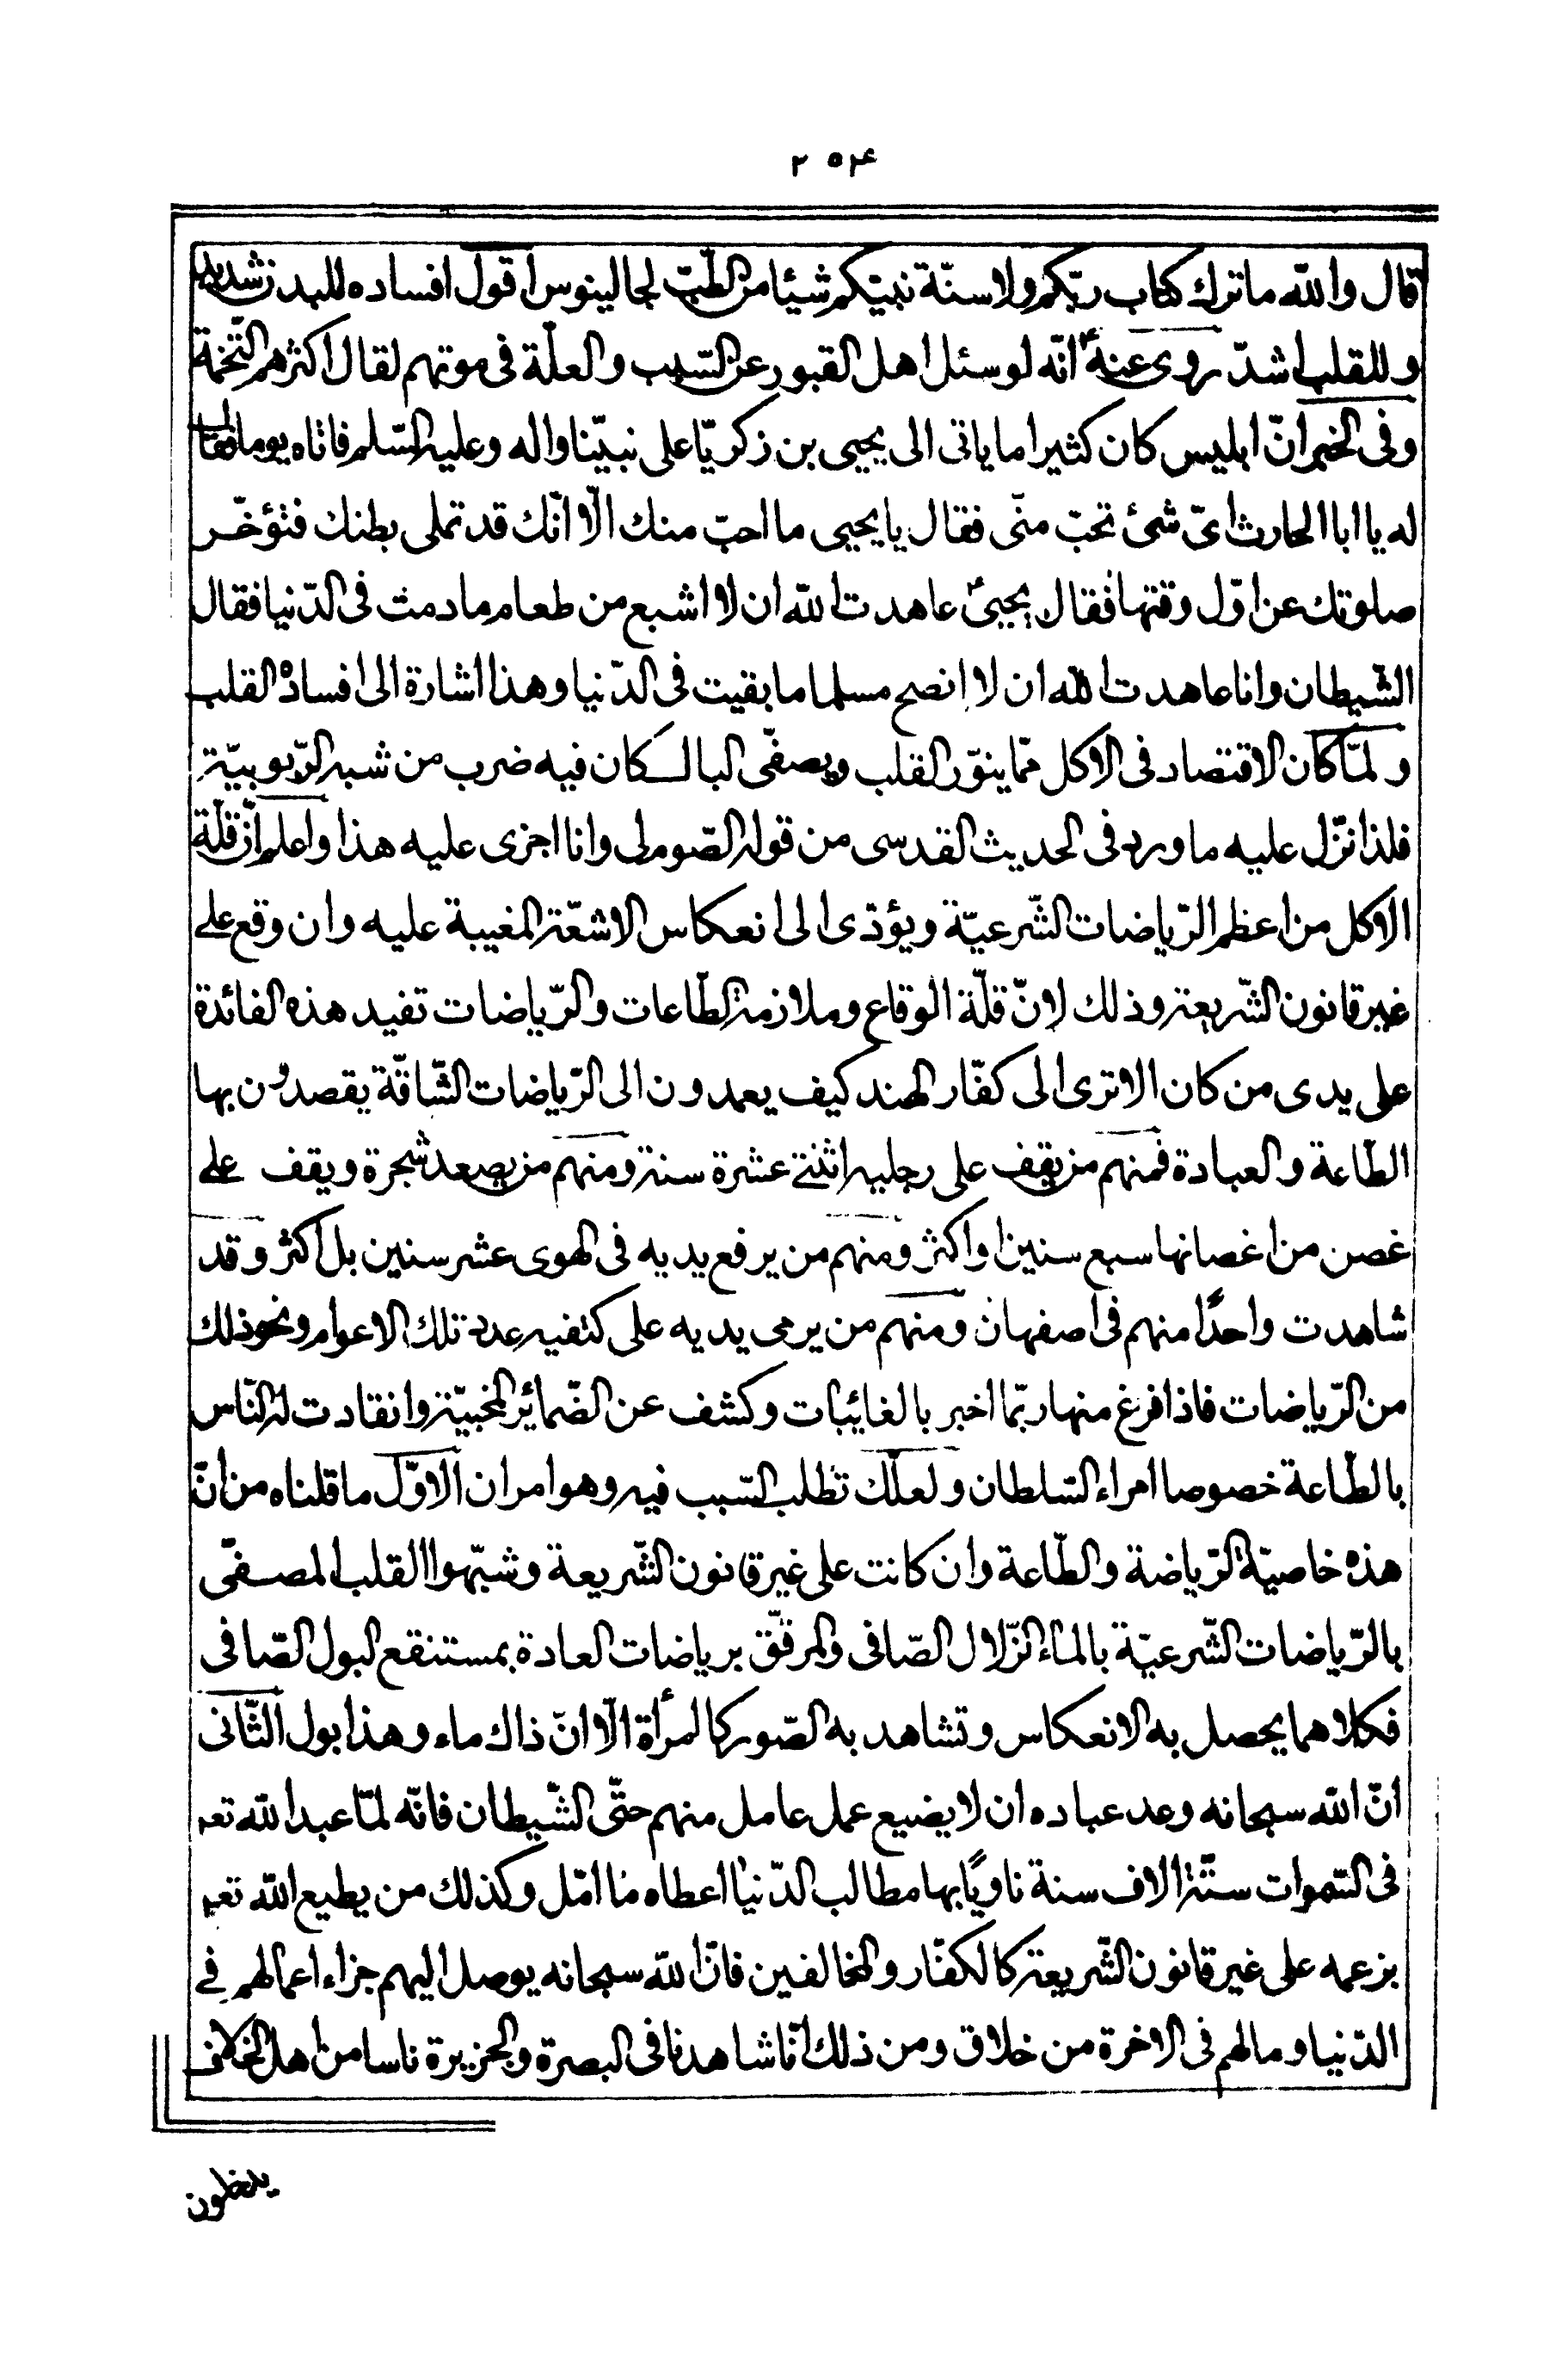 ٢٥۴
قال والله ما ترك كتاب ربّكم ولا سنّة نبيّكم شيئا من الطّبّ لجالينوس اقول افساده للبدن شديد
وللقلب اشدّ روى عنه ع انّه لو سئل اهل القبور عن السّبب والعلّة فى موتهم لقال اكثرهم التّخمة
وفى الخبر انّ ابليس كان كثيرا ما ياتى الى يحيى بن زكريّا على نبيّنا واله وعليه السّلم فاتاه يوما فقال
له يا ابا الحارث اىّ شىئ تحبّ منّى فقال يا يحيى ما احبّ منك الّا انّك قد تملى بطنك فتؤخّر
صلوتك عن اوّل وقتها فقال يحيى ع عاهدت الله ان لا اشبع من طعام ما دمت فى الدّنيا فقال
الشّيطان وانا عاهدت الله ان لا انصح مسلما ما بقيت فى الدّنيا وهذا اشارة الى افساده القلب
ولمّا كان الاقتصاد فى الاكل ممّا ينوّر القلب ويصفّى البال كان فيه ضرب من شبه الرّبوبيّة
فلذا نزّل عليه ما ورد فى الحديث القدسى من قوله الصّوم لى وانا اجزى عليه هذا واعلم انّ قلّة
الاكل من اعظم الرّياضات الشّرعيّة ويؤدّى الى انعكاس الاشعّة المغيبة عليه وان وقع على
غير قانون الشّريعة وذلك لانّ قلّة الوقاع وملازمة الطّاعات والرّياضات تفيد هذه الفائدة
على يدى من كان الا ترى الى كفّار الهند كيف يعمدون الى الرّياضات الشّاقّة يقصدون بها
الطّاعة والعبادة فمنهم من يقف على رجليه اثنتى عشرة سنة ومنهم من يصعد شجرة ويقف على
غصن من اغصانها سبع سنين او اكثر ومنهم من يرفع يديه فى الهوى عشر سنين بل اكثر وقد
شاهدت واحدًا منهم فى اصفهان ومنهم من يرمى يديه على كتفيه عدد تلك الاعوام ونحو ذلك
من الرّياضات فاذا فرغ منها ربّما اخبر بالغايبات وكشف عن الضّمائر المخبيّة وانقادت له النّاس
بالطّاعة خصوصا امراء السّلطان ولعلّك تطلب السّبب فيه وهو امران الاوّل ما قلناه من انّ
هذه خاصيّة الرّياضة والطّاعة وان كانت على غير قانون الشّريعة وشبّهوا القلب المصفّى
بالرّياضات الشّرعيّة بالماء الزّلال الصّافى والمرقّق برياضات العادة بمستنقع البول الصّافى
فكلاهما يحصل به الانعكاس وتشاهد به الصّور كالمرأة الّا انّ ذاك ماء وهذا بول الثّانى
انّ الله سبحانه وعد عباده ان لا يضيع عمل عامل منهم حتّى الشّيطان فانّه لمّا عبد الله تعه
فى السّموات ستّة الاف سنة ناويًا بها مطالب الدّنيا اعطاه ما امّل وكذلك من يطيع الله تعه
بزعمه على غير قانون الشّريعة كالكفّار والمخالفين فانّ الله سبحانه يوصل اليهم جزاء اعمالهم فى
الدّنيا وما لهم فى الاخرة من خلاق ومن ذلك انّا شاهدنا فى البصرة والجزيرة ناسا من اهل الخلاف